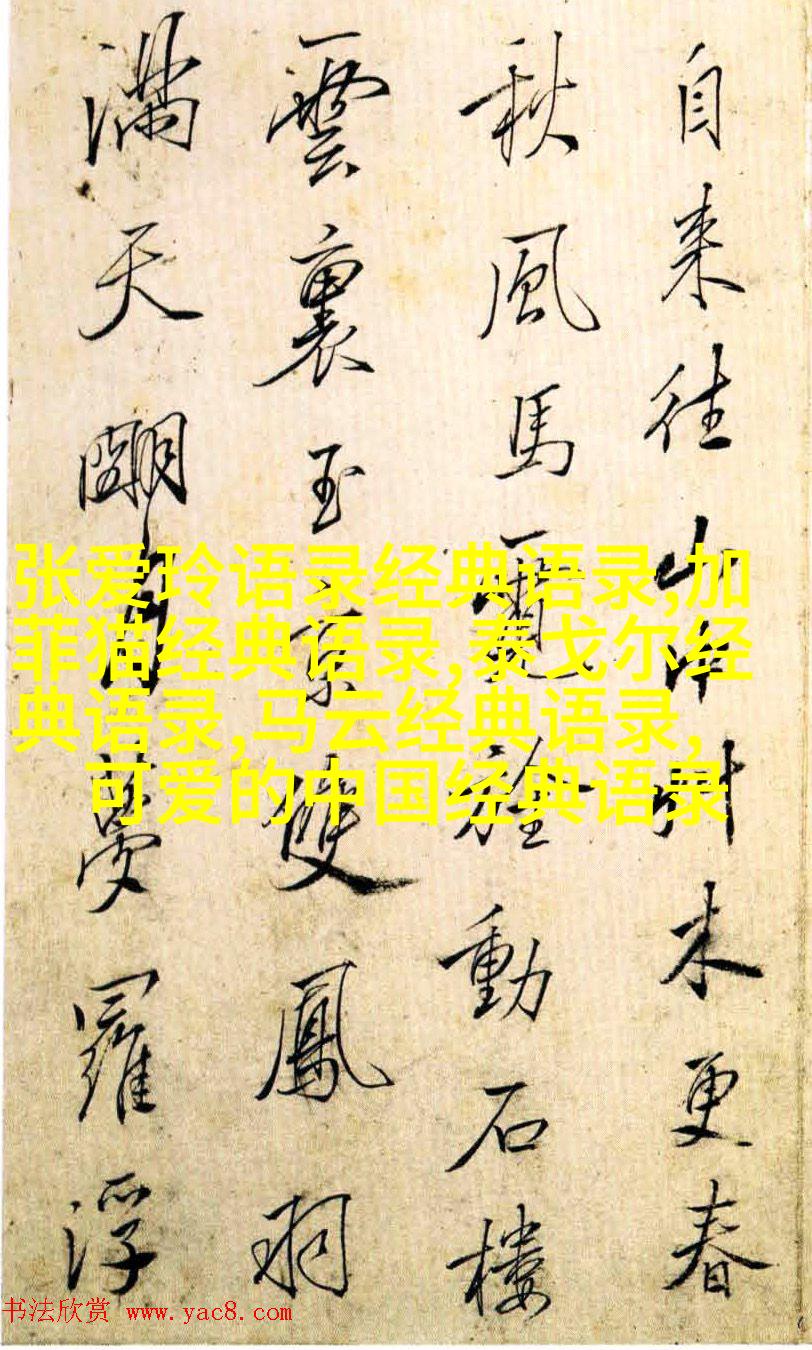 自来往山中艸木更春
秋風馬霓旌動石樓
雲裏玉京雙鳳羽
滿天明月夢羅浮
张爱玲语录经典语录,加
菲猫经典语录,泰戈尔经
典语录,马云经典语录,
可爱的中国经典语录
书法欣赏 www.yac8.com